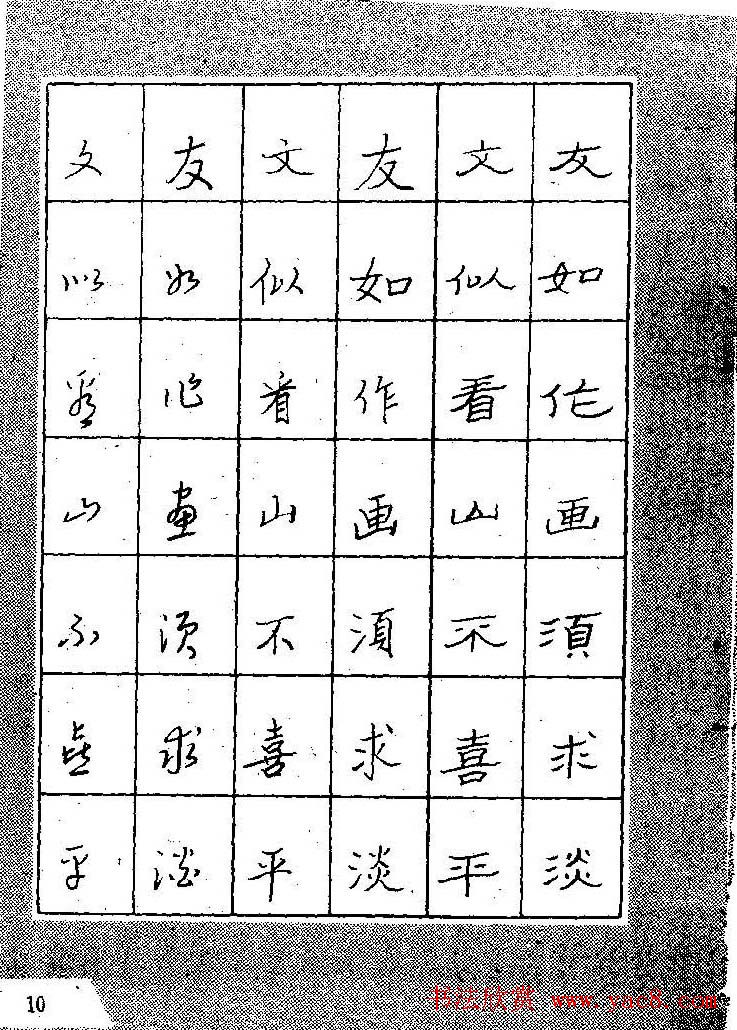 友如作画湏求淡
文似看山不喜平
友如作画湏求淡
文似看山不喜平
友如作畫须求淡
文似看山不喜平
10
书法欣赏 www.yac8.com